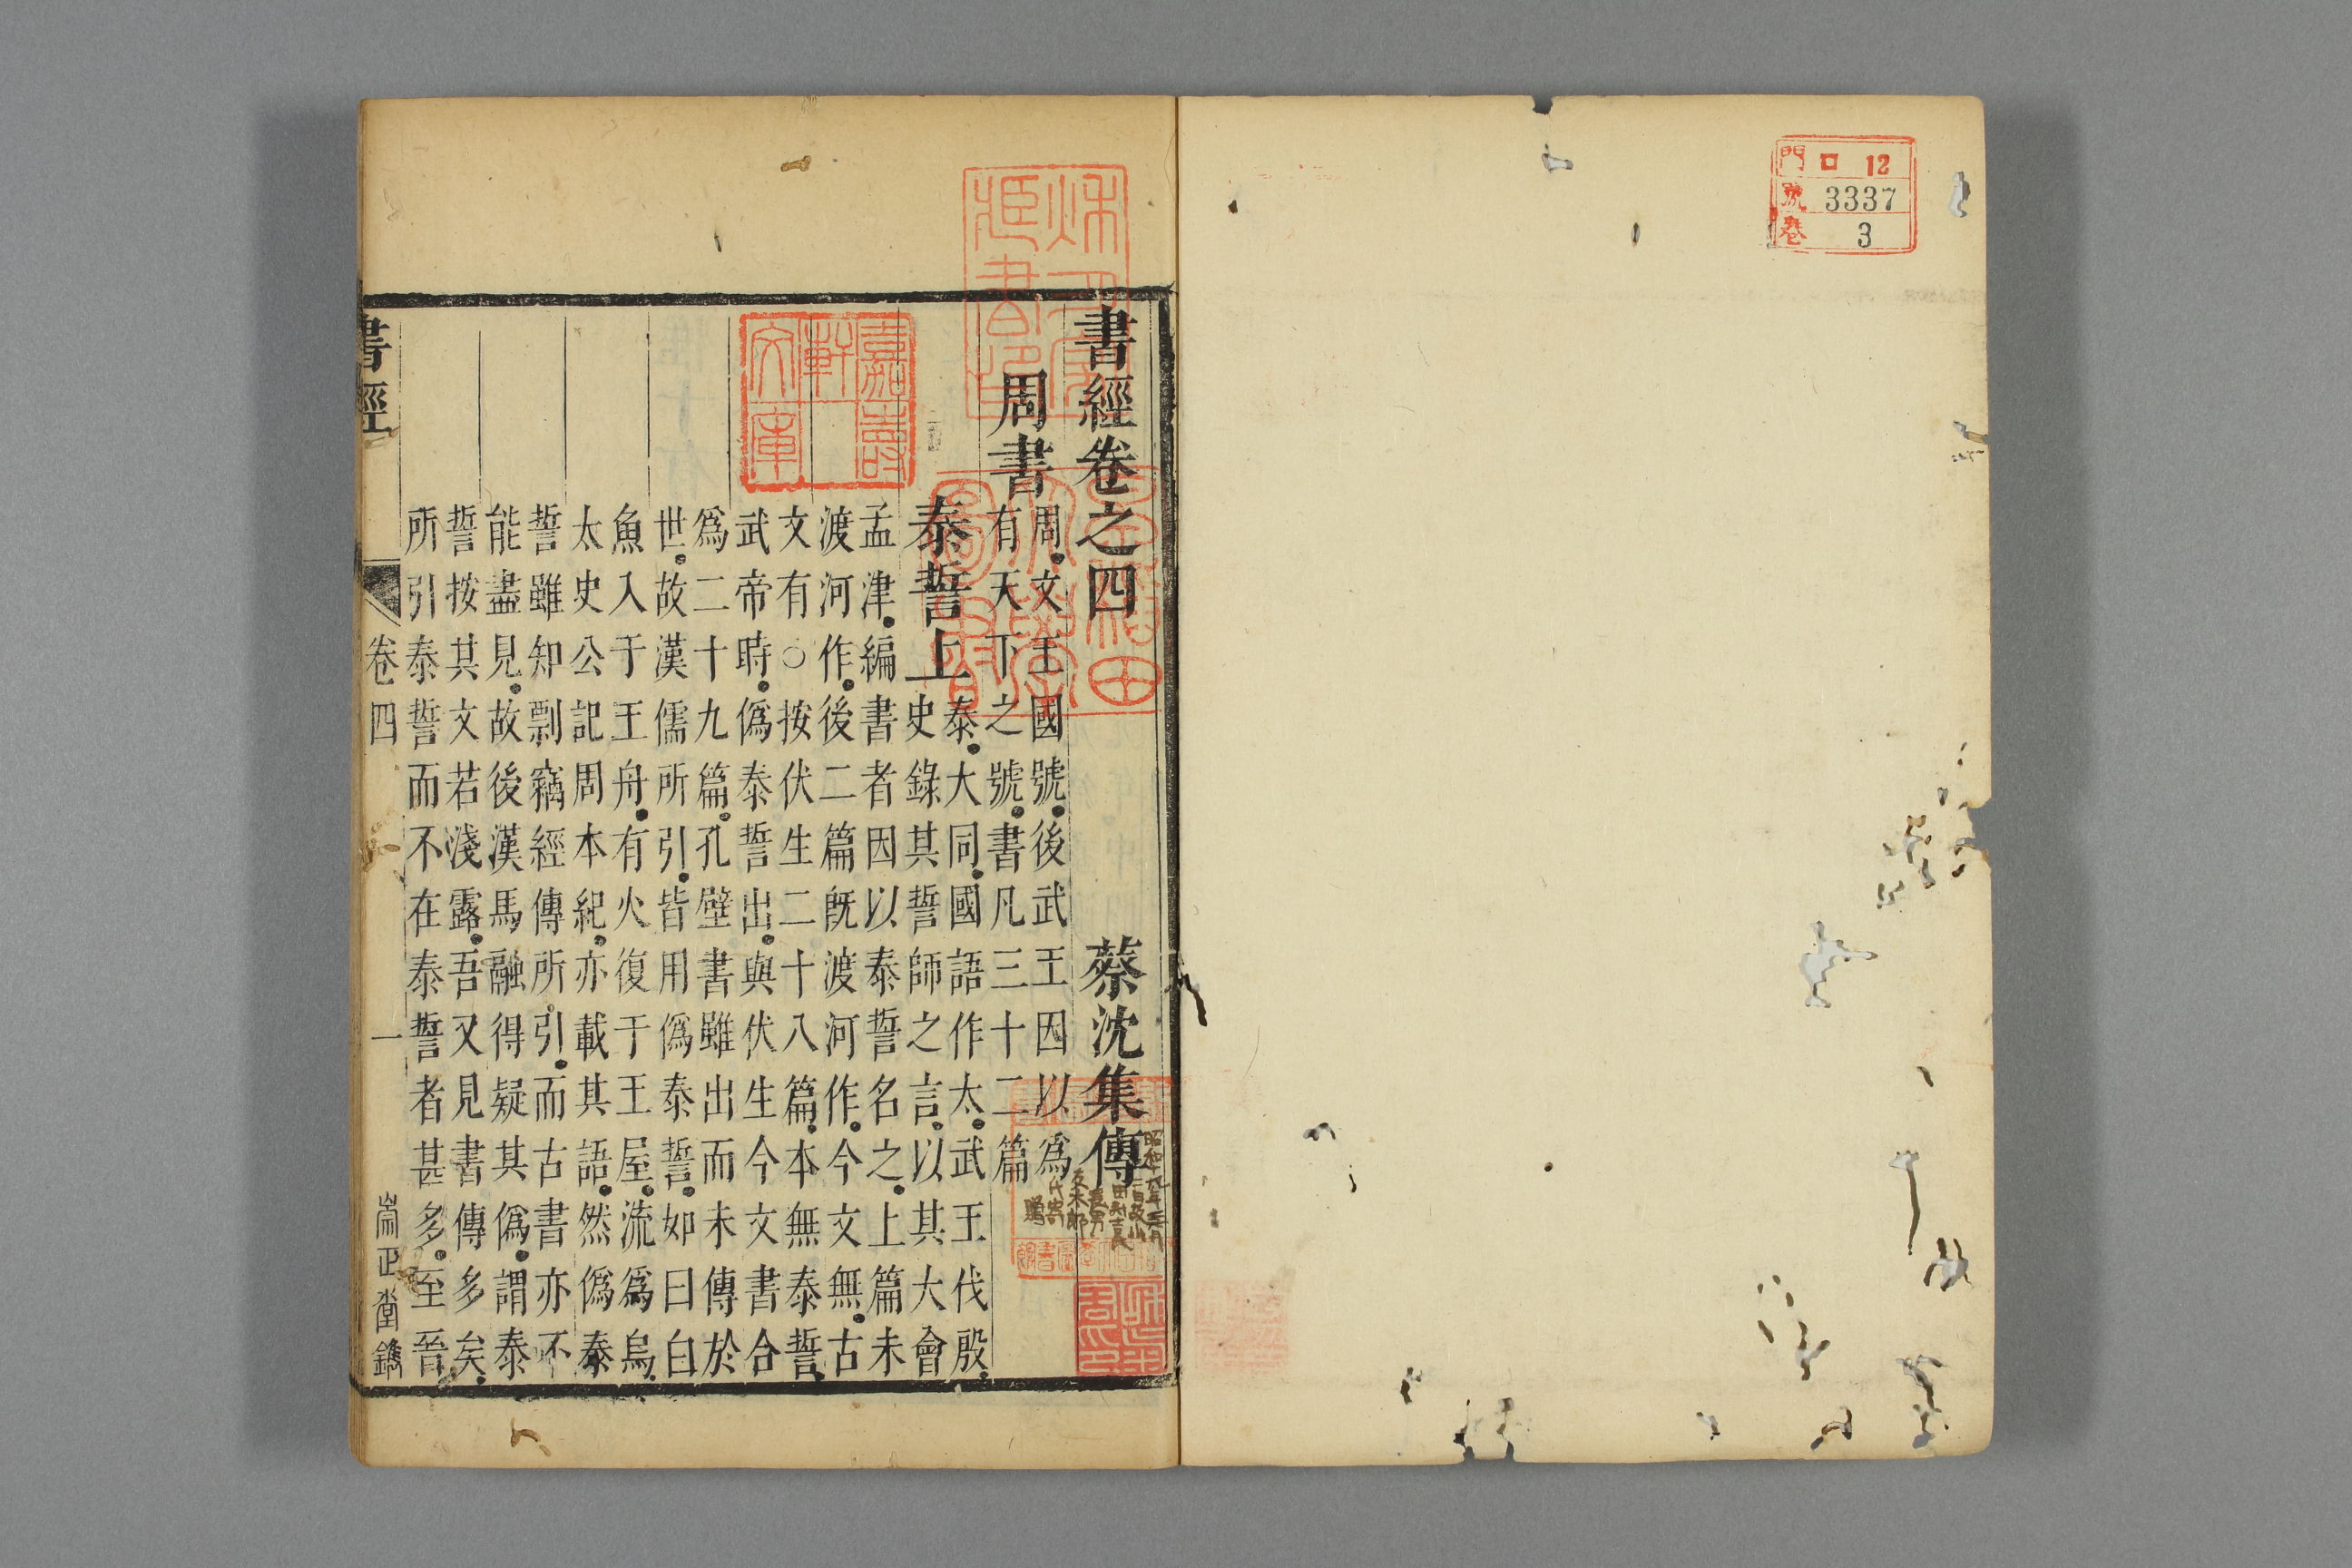 門 口 12
號 3337
卷 3
書經卷之四
蔡沈集傳
周書
周文王國號後武王因以爲
有天下之號書凡三十二篇
泰誓上
泰大同國語作太武王伐殷
史錄其誓師之言以其大會
孟津編書者因以泰誓名之上篇未
渡河作後二篇旣渡河作今文無古
文有○按伏生二十八篇本無泰誓
武帝時僞泰誓出與伏生今文書合
爲二十九篇孔壁書雖出而未傳於
世故漢儒所引皆用僞泰誓如曰白
魚入于王舟有火復于王屋流爲烏
太史公記周本紀亦載其語然僞泰
誓雖知剽竊經傳所引而古書亦不
能盡見故後漢馬融得疑其僞謂泰
誓按其文若淺露吾又見書傳多矣
所引泰誓而不在泰誓者甚多至晉
書經
卷四
一
崇正堂鐫
嘉壽軒文庫